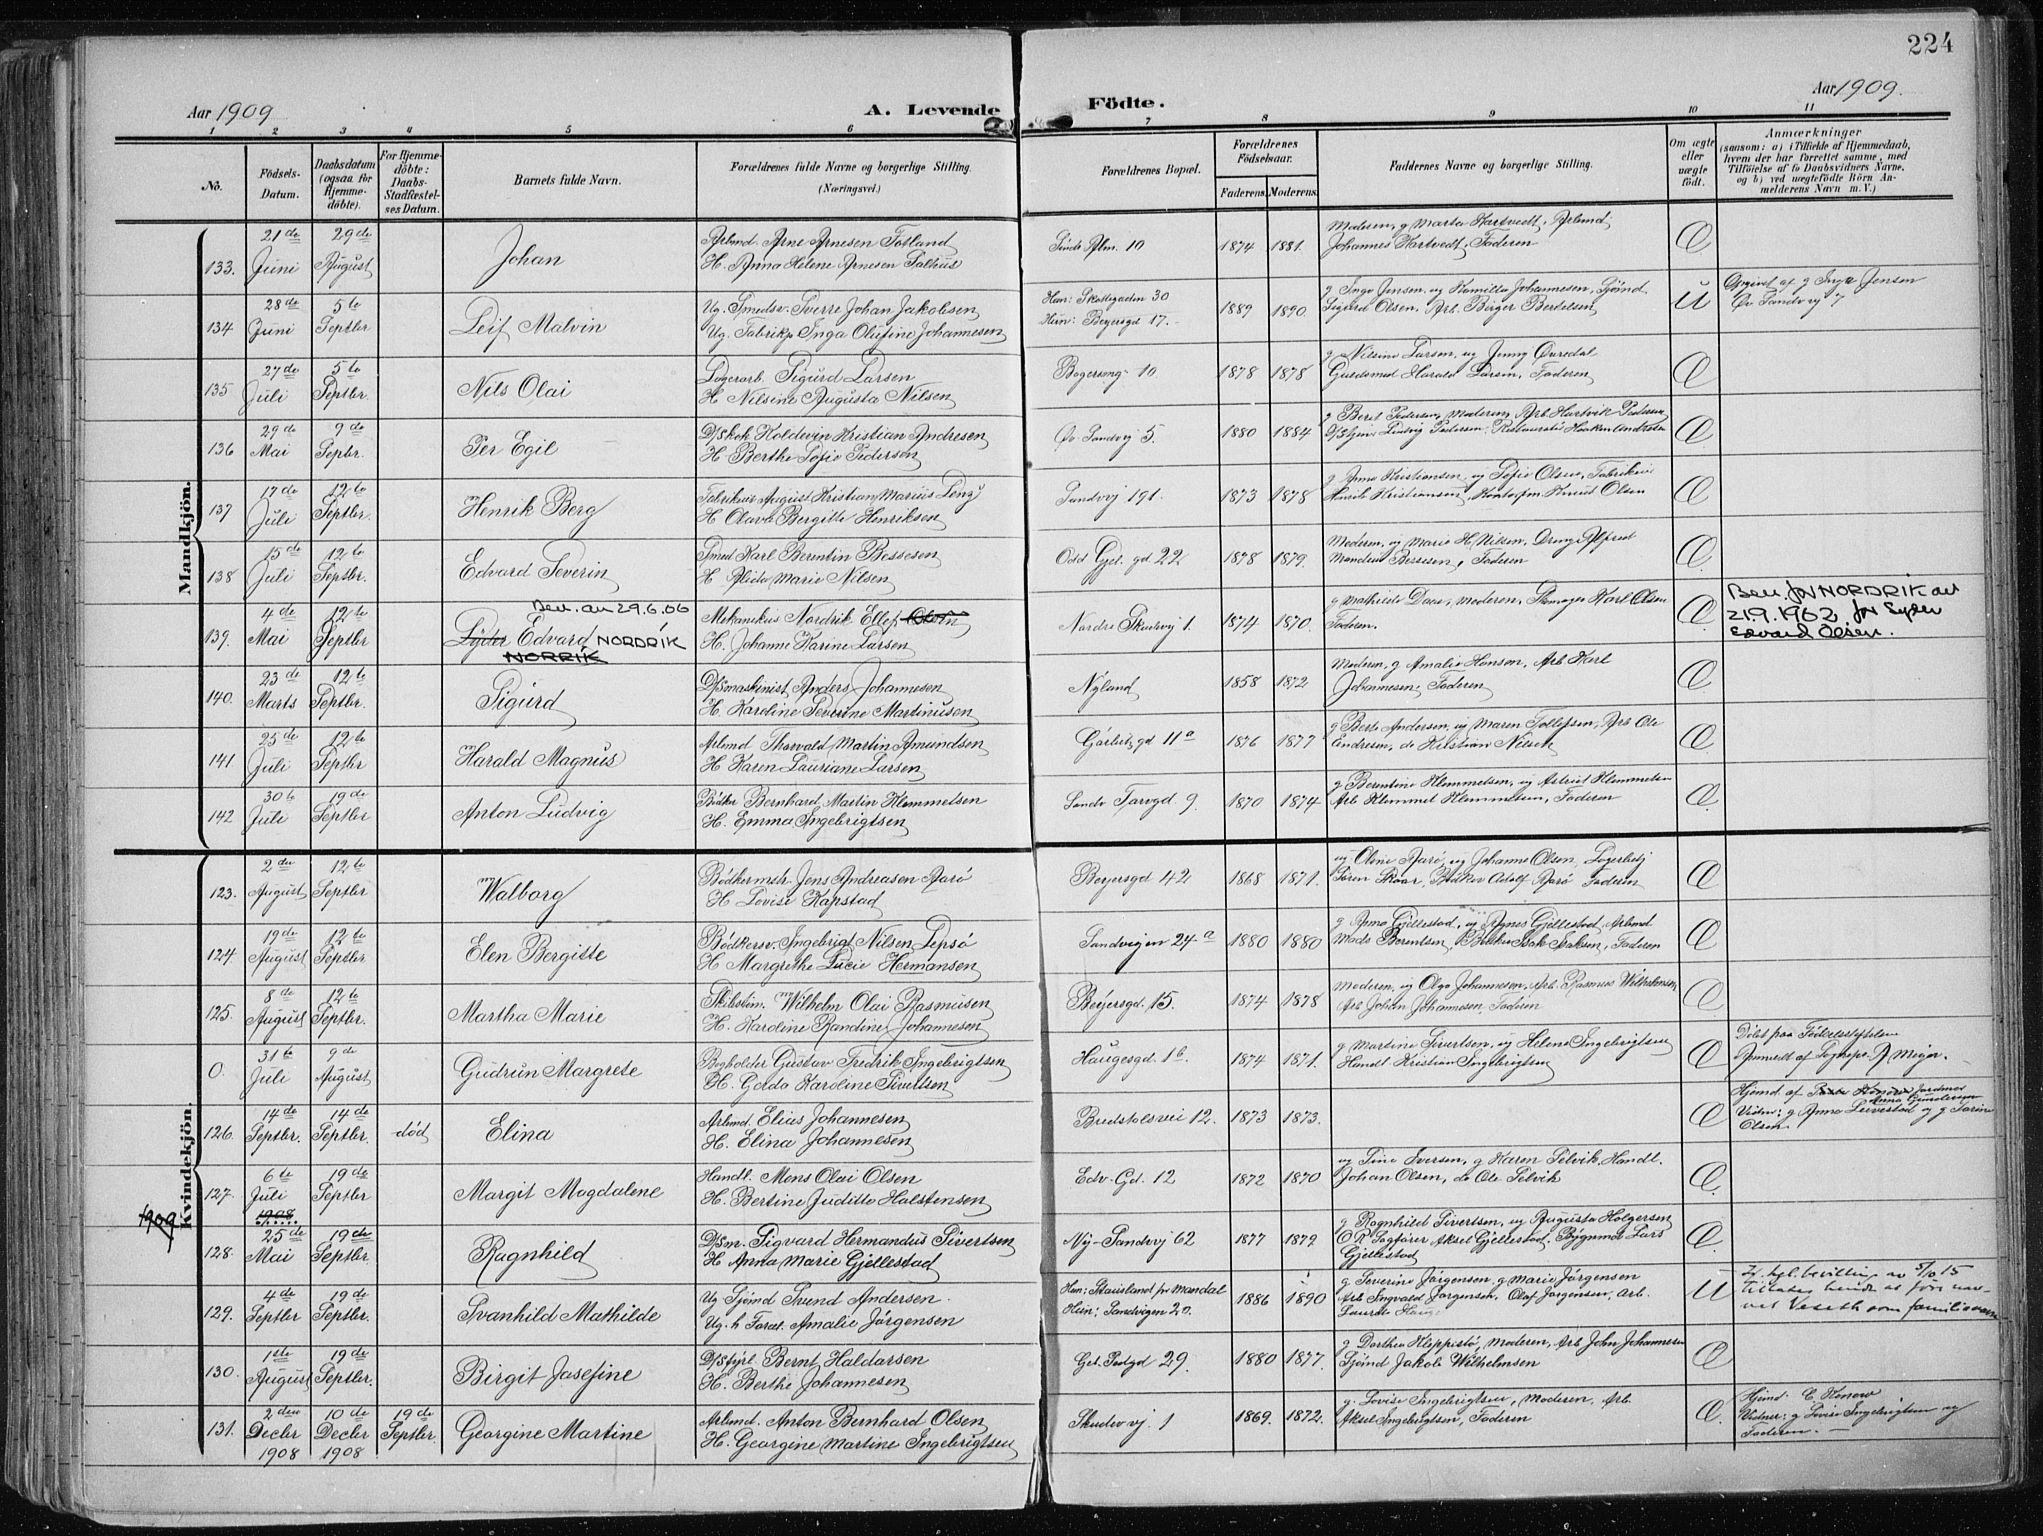 224
Aar 1909
A. Levende
Födte.
Aar 1909.
1 2 3 4 5 6 7 8 9 10 11
No.
Födsels-Datum.
Daabsdatum (ogsaa for Hjemmedöbte).
For Hjemmedöbte: Daabs-Stadfæstelses Datum.
Barnets fulde Navn.
Forældrenes fulde Navne og borgerlige Stilling.
(Næringsvei.)
Forældrenes Bopæl.
Forældrenes Födselsaar.
Faderens. Moderens.
Faddernes Navne og borgerlige Stilling.
Om ægte eller uægte födt.
Anmærkninger
(saasom: a) i Tilfælde af Hjemmedaab, hvem der har forrettet samme, med Tilföielse af to Daabsvidners Navne, og b) ved uægtefödte Börn Anmelderens Navn m. V.)
Mandkjön.
133. 21de Juni 29de August Johan
Arbmd. Arne Arnesen Totland
H. Anna Helene Arnesen
10 1874 1881.
Moderen, g Marta Hartvedt, Arbmd.
Johannes Hartvedt, Faderen
Æ
134 28de Juni 5te Septbr Leif Malvin
Ug. Smedsv. Sverre Johan Jakobsen
Ug. Fabrikp Inga Olufine Johannesen
Han: Skottegaden 30
Hun: Beyersgd 17.
1889 1890.
g Inga Jensen og Kamilla Johannesen, Sjömd
Sigurd Olsen, Arb. Birger Bertelsen
U
Opgivet af g Inga Jensen
Öv. Sandvig 7
135 27de Juli 5te Septbr. Nils Olai
Lagerarb. Sigurd Larsen
H Nilsine Augusta Nilsen
10 1878 1878
g Nilsine Larsen, ug Jenny Övredal
Guldsmed Harald Larsen, Faderen
Æ
136 29de Mai 9de Septbr. Per Egil
D/Skok Koldevin Kristian Andresen
H Berthe Sofie Pedersen
Öv. Sandvj 5. 1880 1884
g Berit Pedersen, Moderen, Arb. Hartvik Pedersen
Ludvig Pedersen,
Æ
137 17de Juli 12te Septbr. Henrik Berg
August Kristian Marius
H Olava Bergitte Henriksen
Sandvj 191. 1873 1878
g Anna Kristiansen og Sofie Olsen,
Henrik Kristiansen, Knut Olsen
Æ
138 15de Juli 12te Septbr. Edvard Severin
Smed Karl Berentin Bessesen
H Alida Marie Nilsen
Odd Gjel. gd 22 1878 1879.
Moderen, ug Marie H. Nilsen, Dreng Alfred
Bessesen, Faderen
Æ
139. 4de Mai 12te Septbr.
Ben. an 29.6.06
Lyder Edvard NORDRIK
NORRIK
Mekanikus Nordrik Ellef Olsen
H. Johanne Karine Larsen
Nordre Skudevj 1 1874 1870.
g Mathilde Daae, Moderen, Skomager Karl Olsen
Faderen.
Æ
NORDRIK
21.9.1962 for Lyder
Edvard Olsen.
140. 23de Marts 12te Septbr. Sigurd
D/Smaskinist Anders Johannesen
H. Karoline Severine Martinusen
Nyland 1858 1872
Moderen, g Amalie Hansen, Arb Karl
Johannesen, Faderen
Æ
141 25de Juli 12te Septbr. Harald Magnus
Arbmd Thorvald Martin Amundsen
H. Karen Lauriane Larsen
11a 1876 1877
g Berte Andersen, ug Maren Tollefsen, Arb Ole
Endresen, do Kristian Nilsen
Æ
142 30te Juli 19de Septbr Anton Ludvig
Bödker Bernhard Martin Klemmetsen
H. Emma Ingebrigtsen
9. 1870 1874
g Berentine Klemmetsen, ug Astrid Klemmetsen
Arb Klemmet Klemmetsen, Faderen
Æ
Kvindekjön.
123. 2den August 12te Septbr Walborg
Bödkermstr. Jens Andreasen Aarö
H Lovise Kapstad
Beyersgd 42 1868 1871.
ug Oline Aarö, ug Johanne Olsen,
Sören Skaar, Bödker Adolf Aarö Faderen
Æ
124 19de August 12te Septbr. Elen Bergitte
Bödkersv. Ingebrigt Nilsen Lepsö
H Margrethe Lucie Hermansen
Sandvigen 24a 1880 1880
g Anna Gjellestad, ug Agnes Gjellestad, Arbmd
Mads Berentsen, Faderen
Æ
125. 8de August 12te Septbr. Martha Marie
Wilhelm Olai Rasmusen
H. Karoline Randine Johannesen
Beyersgd. 15. 1874 1878
Moderen, ug Olga Johannesen, Arb. Rasmus Wilhelmsen,
Arb Johan Johannesen, Faderen
Æ
0. 31te Juli 9de August Gudrun Margrete
Bogholder Gustav Fredrik Ingebrigtsen
H. Gerda Karoline Sivertsen
Haugesgd. 1b. 1874 1871.
g Martine Sivertsen, ug Helene Ingebrigtsen
Handl Kristian Ingebrigtsen
Æ
Döbt paa Födselsstiftelsen
Anmeldt af Sognepr. Meyer.
126. 14de Septbr. 14de Septbr. död Elina
Arbmd. Elias Johannesen
H. Elina Johannesen
Bredstolsvei 12. 1873 1873.
Æ
Hjemd af Jordmor
Anna Gundersen
Vidner: g Anna Leirestad og g
Olsen.
127. 6te Juli 19de Septbr Margit Magdalene
1908
Handl. Mons Olai Olsen
H. Bertine Juditte Halstensen
Edv. Gd. 12 1872 1870
ug Sine Iversen, g Karen Selvik, Handl.
Johan Olsen, do Ole Selvik
Æ
1909
128. 25de Mai 19de Septbr Ragnhild
D/Sm. Sigvard Hermandus Sivertsen
H Anna Marie Gjellestad
Ny-Sandvj 62 1877 1872
g Ragnhild Sivertsen, ug Augusta Holgersen
O.R. Sagförer Aksel Gjellestad. Bygnmd Lars
Gjellestad
Æ
129. 4de Septbr 19de Septbr Svanhild Mathilde
Ug Sjömd Svend Andersen.
Ug. h. Amalie Jörgensen
Han: Stausland pr Mandal
Hun: Sandvigen 20.
1886 1890
g Severine Jörgensen, g Marie Jörgensen
Arb Ingvald Jörgensen, Olaf Jörgensen, Arb.
Laurits
U
kgl. bevilling av 5/10 15
tillades hende at före nav-
net Veseth som familienavn
130. 1ste August 19de Septbr. Birgit Josefine
D/Sfyrb. Bernt Haldorsen
H. Berthe Johannesen
29. 1880 1877.
g Dorthea Kleppestö, Moderen, Arb. John Johannesen
Sjömd Jakob Wilhelmsen
Æ
131. 2den Decbr 1908 10de Decbr 1908 19de Septbr. Georgine Martine
Arbmd. Anton Bernhard Olsen
H. Georgine Martine Ingebrigtsen
Skudevj. 1 1869. 1872.
g. Lovise Ingebrigtsen, Moderen, Arb.
Aksel Ingebrigtsen, Faderen
Æ
Hjemd: C. Konow
Vidner: g Lovise Ingebrigtsen og
Faderen.